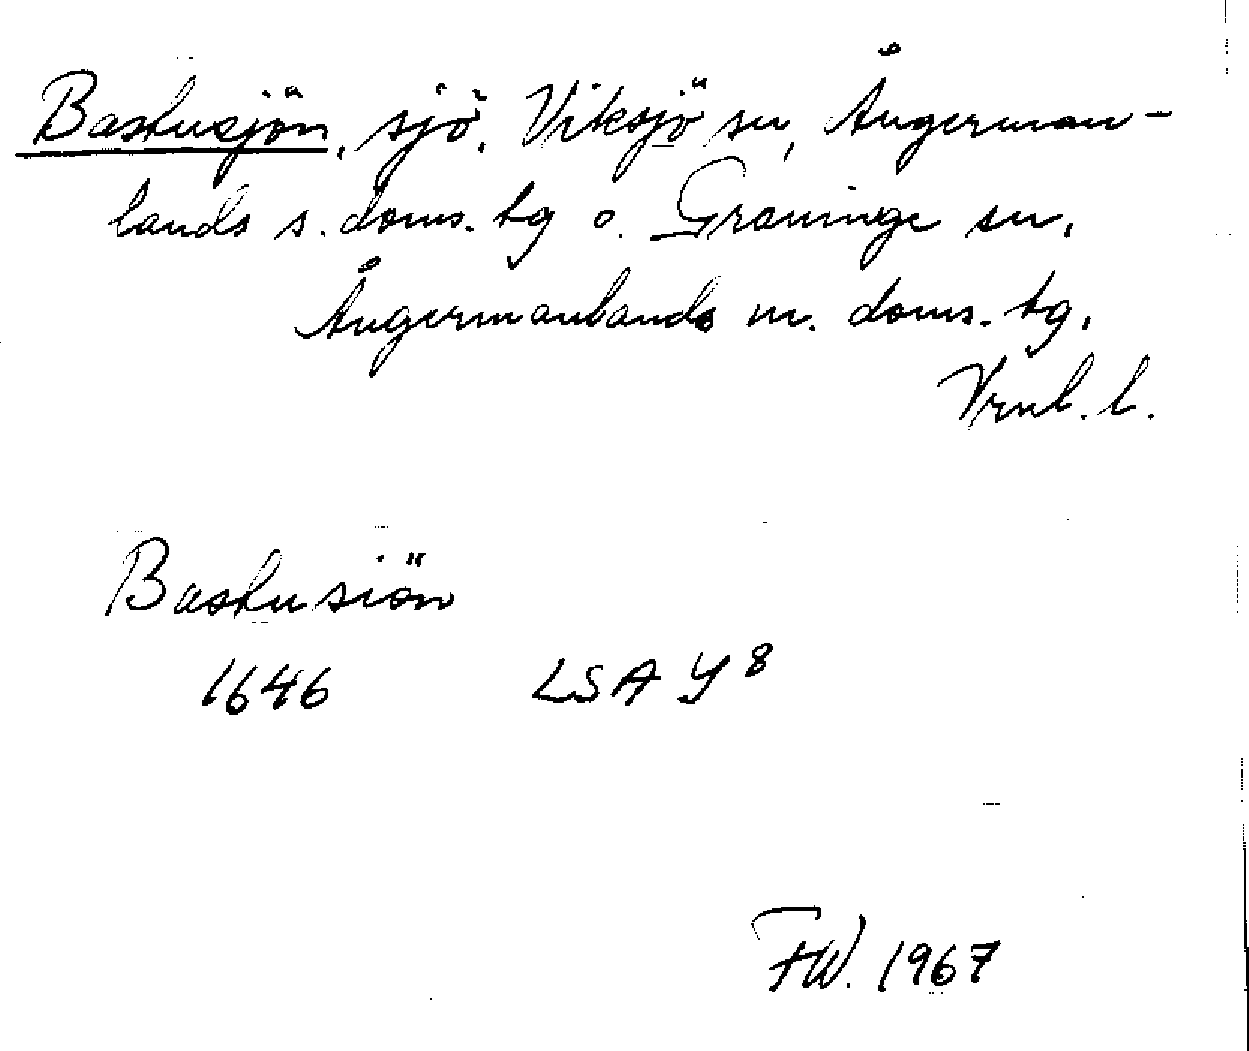 Bastusjön, sjö, Viksjö sn, Ångerman-
lands s. doms. tg o. Graninge sn,
Ångermanlands m. doms. tg,
Vrnl. l.
Bastusiön
1646 LSA Y 8
FW. 1967